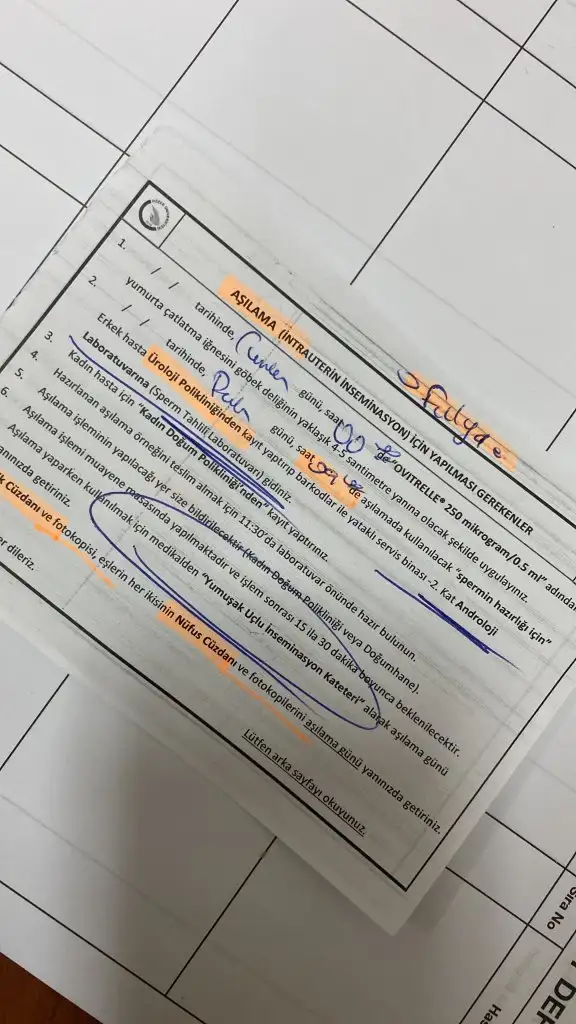 AŞILAMA (İNTRAUTERİN İNSEMİNASYON) İÇİN YAPILMASI GEREKENLER
1. / / tarihinde, günü, saat 00 de "OVITRELLE® 250 mikrogram/0.5 ml" adında
yumurta çatlatma iğnesini göbek deliğinin yaklaşık 3.5 santimetre yanına olacak şekilde uygulayınız.
2. / / tarihinde, günü, saat de aşılamada kullanılacak "spermin hazırlığı için"
Erkek hasta Üroloji Polikliniğinden kayıt yaptırıp barkodlar ile yataklı servis binası -2. Kat Androloji
Laboratuvarına (Sperm Tahlil Laboratuvarı) gidiniz.
3. Kadın hasta için "Kadın Doğum Polikliniği'nden" kayıt yaptırınız.
4. Hazırlanan aşılama örneğini teslim almak için 11:30'da laboratuvar önünde hazır bulunun.
5. Aşılama işleminin yapılacağı yer size bildirilecektir (Kadın Doğum Polikliniği veya Doğumhane).
6. Aşılama işlemi muayene masasında yapılmaktadır ve işlem sonrası 15 ila 30 dakika boyunca beklenilecektir.
Aşılama yaparken kullanılmak için medikalden "Yumuşak Uçlu İnseminasyon Kateteri" alarak aşılama günü
yanınızda getiriniz.
Cüzdanı ve fotokopisi, eşlerin her ikisinin Nüfus Cüzdanı ve fotokopilerini aşılama günü yanınızda getiriniz.
dileriz.
Lütfen arka sayfayı okuyunuz.
Sıra No